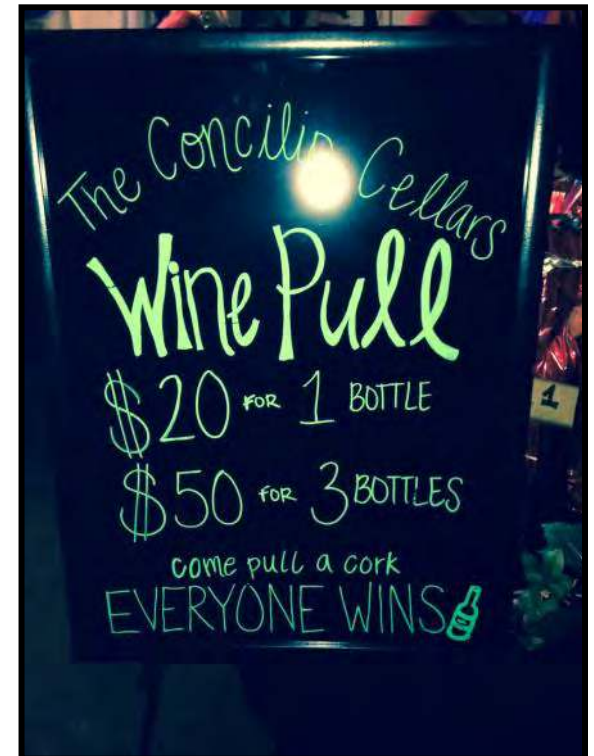 The Concilio Cellars
Wine Pull
$20 FOR 1 BOTTLE
$50 FOR 3 BOTTLES
come pull a cork
EVERYONE WINS
1